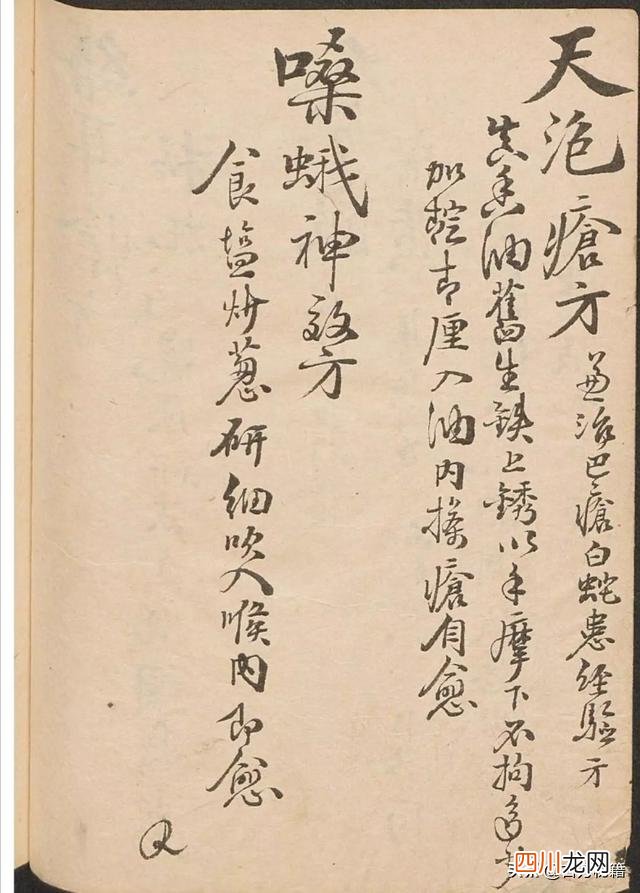 天泡瘡方 兼治巴瘡白蛇患经驗方
真香油舊生鉄上銹以手摩下不拘多少
加靛青厘入油内搽瘡自愈
嗓蛾神效方
食塩炒葱研细吹入喉内即愈
又
四川龙网